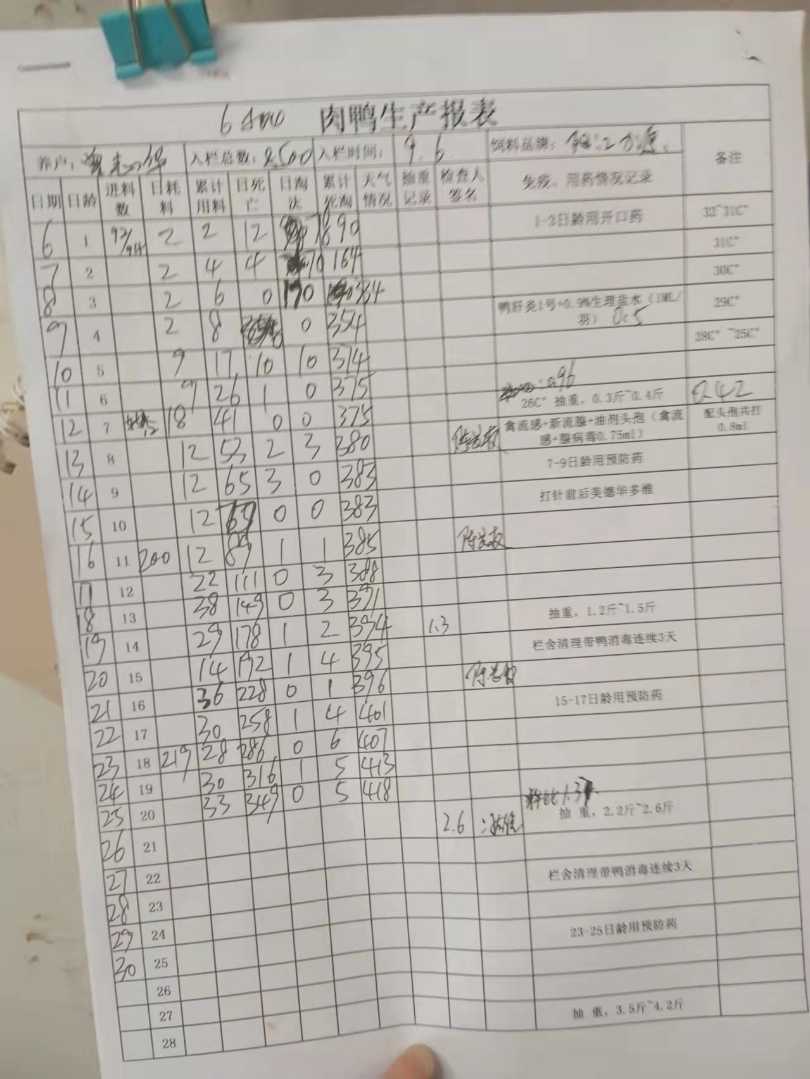 肉鸭生产报表
养户: 入栏总数: 8500 入栏时间: 9.6 饲料品牌: 备注
日期 日龄 进料数 日耗料 累计用料 日死亡 日淘汰 累计死淘 天气情况 抽重记录 检查人签名 免疫、用药情况记录
6 1 2 2 12 78 90 1-3日龄用开口药 32~31C°
7 2 2 4 4 70 164 31C°
8 3 2 6 0 190 354 30C°
9 4 2 8 0 354 鸭肝炎1号+0.9%生理盐水（1ML/羽） 0.5 29C°
10 5 9 17 10 10 374 28C°~25C°
11 6 9 26 1 0 375 26C° 抽重，0.3斤~0.4斤 0.42
12 7 18 41 0 0 375 禽流感+新流腺+油剂头孢（禽流感+腺病毒0.75ml） 配头孢共打0.8ml
13 8 12 53 2 3 380 7-9日龄用预防药
14 9 12 65 3 0 383
15 10 12 0 0 383 打针前后美德华多维
16 11 200 12 89 1 1 385
17 12 22 111 0 3 388
18 13 38 149 0 3 391 抽重，1.2斤~1.5斤
19 14 29 178 1 2 394 1.3 栏舍清理带鸭消毒连续3天
20 15 14 192 1 4 395
21 16 36 228 0 1 396 15-17日龄用预防药
22 17 30 258 1 4 401
23 18 219 28 286 0 6 407
24 19 30 316 1 5 413
25 20 33 349 0 5 418 抽重，2.2斤~2.6斤
26 21 2.6
27 22 栏舍清理带鸭消毒连续3天
28 23
29 24 23-25日龄用预防药
30 25
26
27 抽重，3.5斤~4.2斤
28